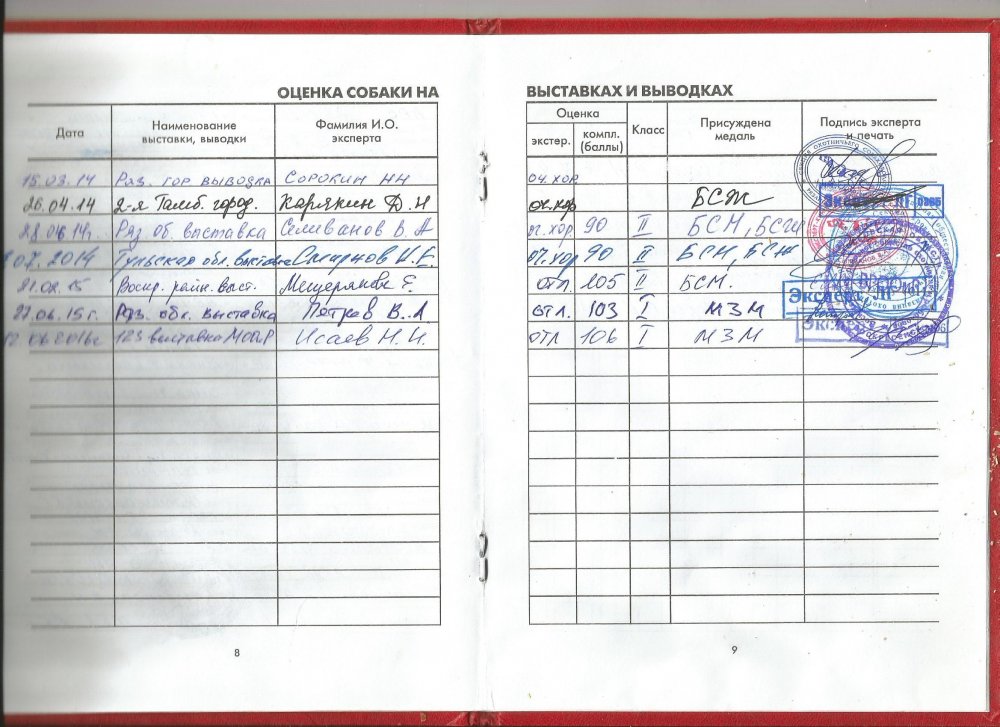 ОЦЕНКА СОБАКИ НА ВЫСТАВКАХ И ВЫВОДКАХ
Дата Наименование выставки, выводки Фамилия И.О. эксперта Оценка Класс Присуждена медаль Подпись эксперта и печать
экстер. компл. (баллы)
15.03.14 Ряз. гор выводка Сорокин НН оч. хор
26.04.14 2-я Тамб. город. Карякин Д.Н оч. хор БСЖ
28.06 14г. Ряз об. выставка Селиванов В.А оч. хор. 90 II БСМ, БСЖ
07. 2014 Тульская обл. выставка Смирнов И.Е. оч. хор 90 II БСМ, БСЖ
21.02.15 Воскр. райн. выст. Е. отл. 105 II БСМ.
27.06.15г. Ряз. обл. выставка Петров В.А отл. 103 I МЗМ
12.06.2016г 123 выставка МООиР Исаев Н.И. отл 106 I МЗМ
Эксперт
Эксперт
8
9